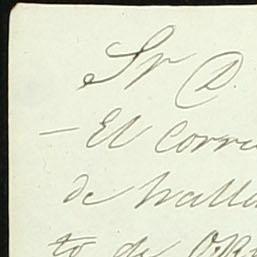 Sr D.
— El corre
de halla
to de